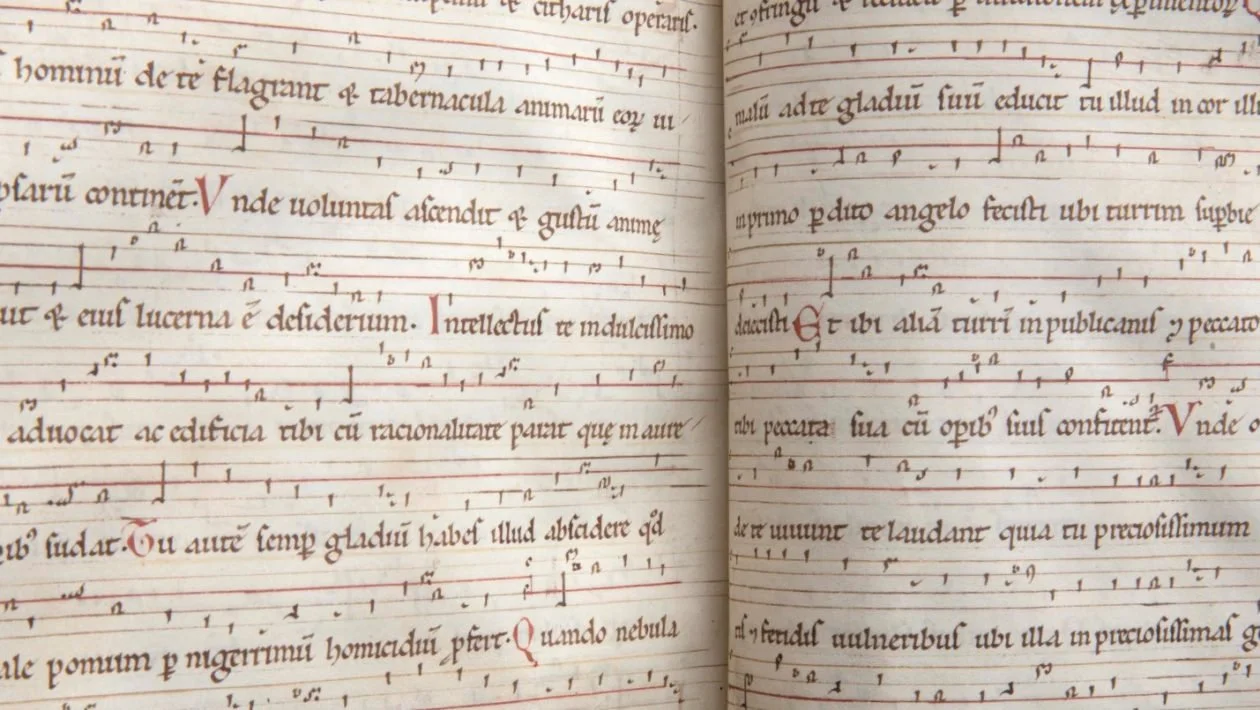 & citharis operaris.
hominū de te flagrant & tabernacula animarū eoꝝ ui
psarū continēt. Vnde uoluntas ascendit & gustū animę
uit & eius lucerna ē desiderium. Intellectus te indulcissimo
aduocat ac edificia tibi cū racionalitate parat que in aure
ibꝰ sudat. Tu autē semꝑ gladiū habes illud abscidere qd̄
ale pomum ꝑ nigerrimū homicidiū ꝓfert. Quando nebula
malū ad te gladiū suū educit tu illud in cor ill
in primo ꝑdito angelo fecisti ubi turrim suꝑbie
deiecisti Et ibi aliā turrī in publicanis ⁊ peccato
tibi peccata sua cū oꝑibꝰ suis confitent᷑. Vnde o
de te uiuunt te laudant quia tu preciosissimum
is ⁊ fetidis uulneribus ubi illa in preciosissimas g